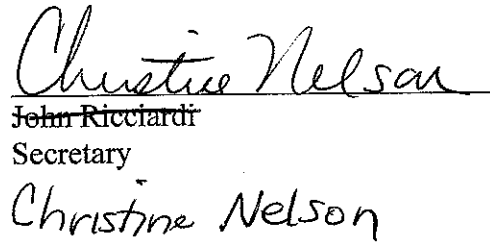 Christine Nelson
John Ricciardi
Secretary
Christine Nelson